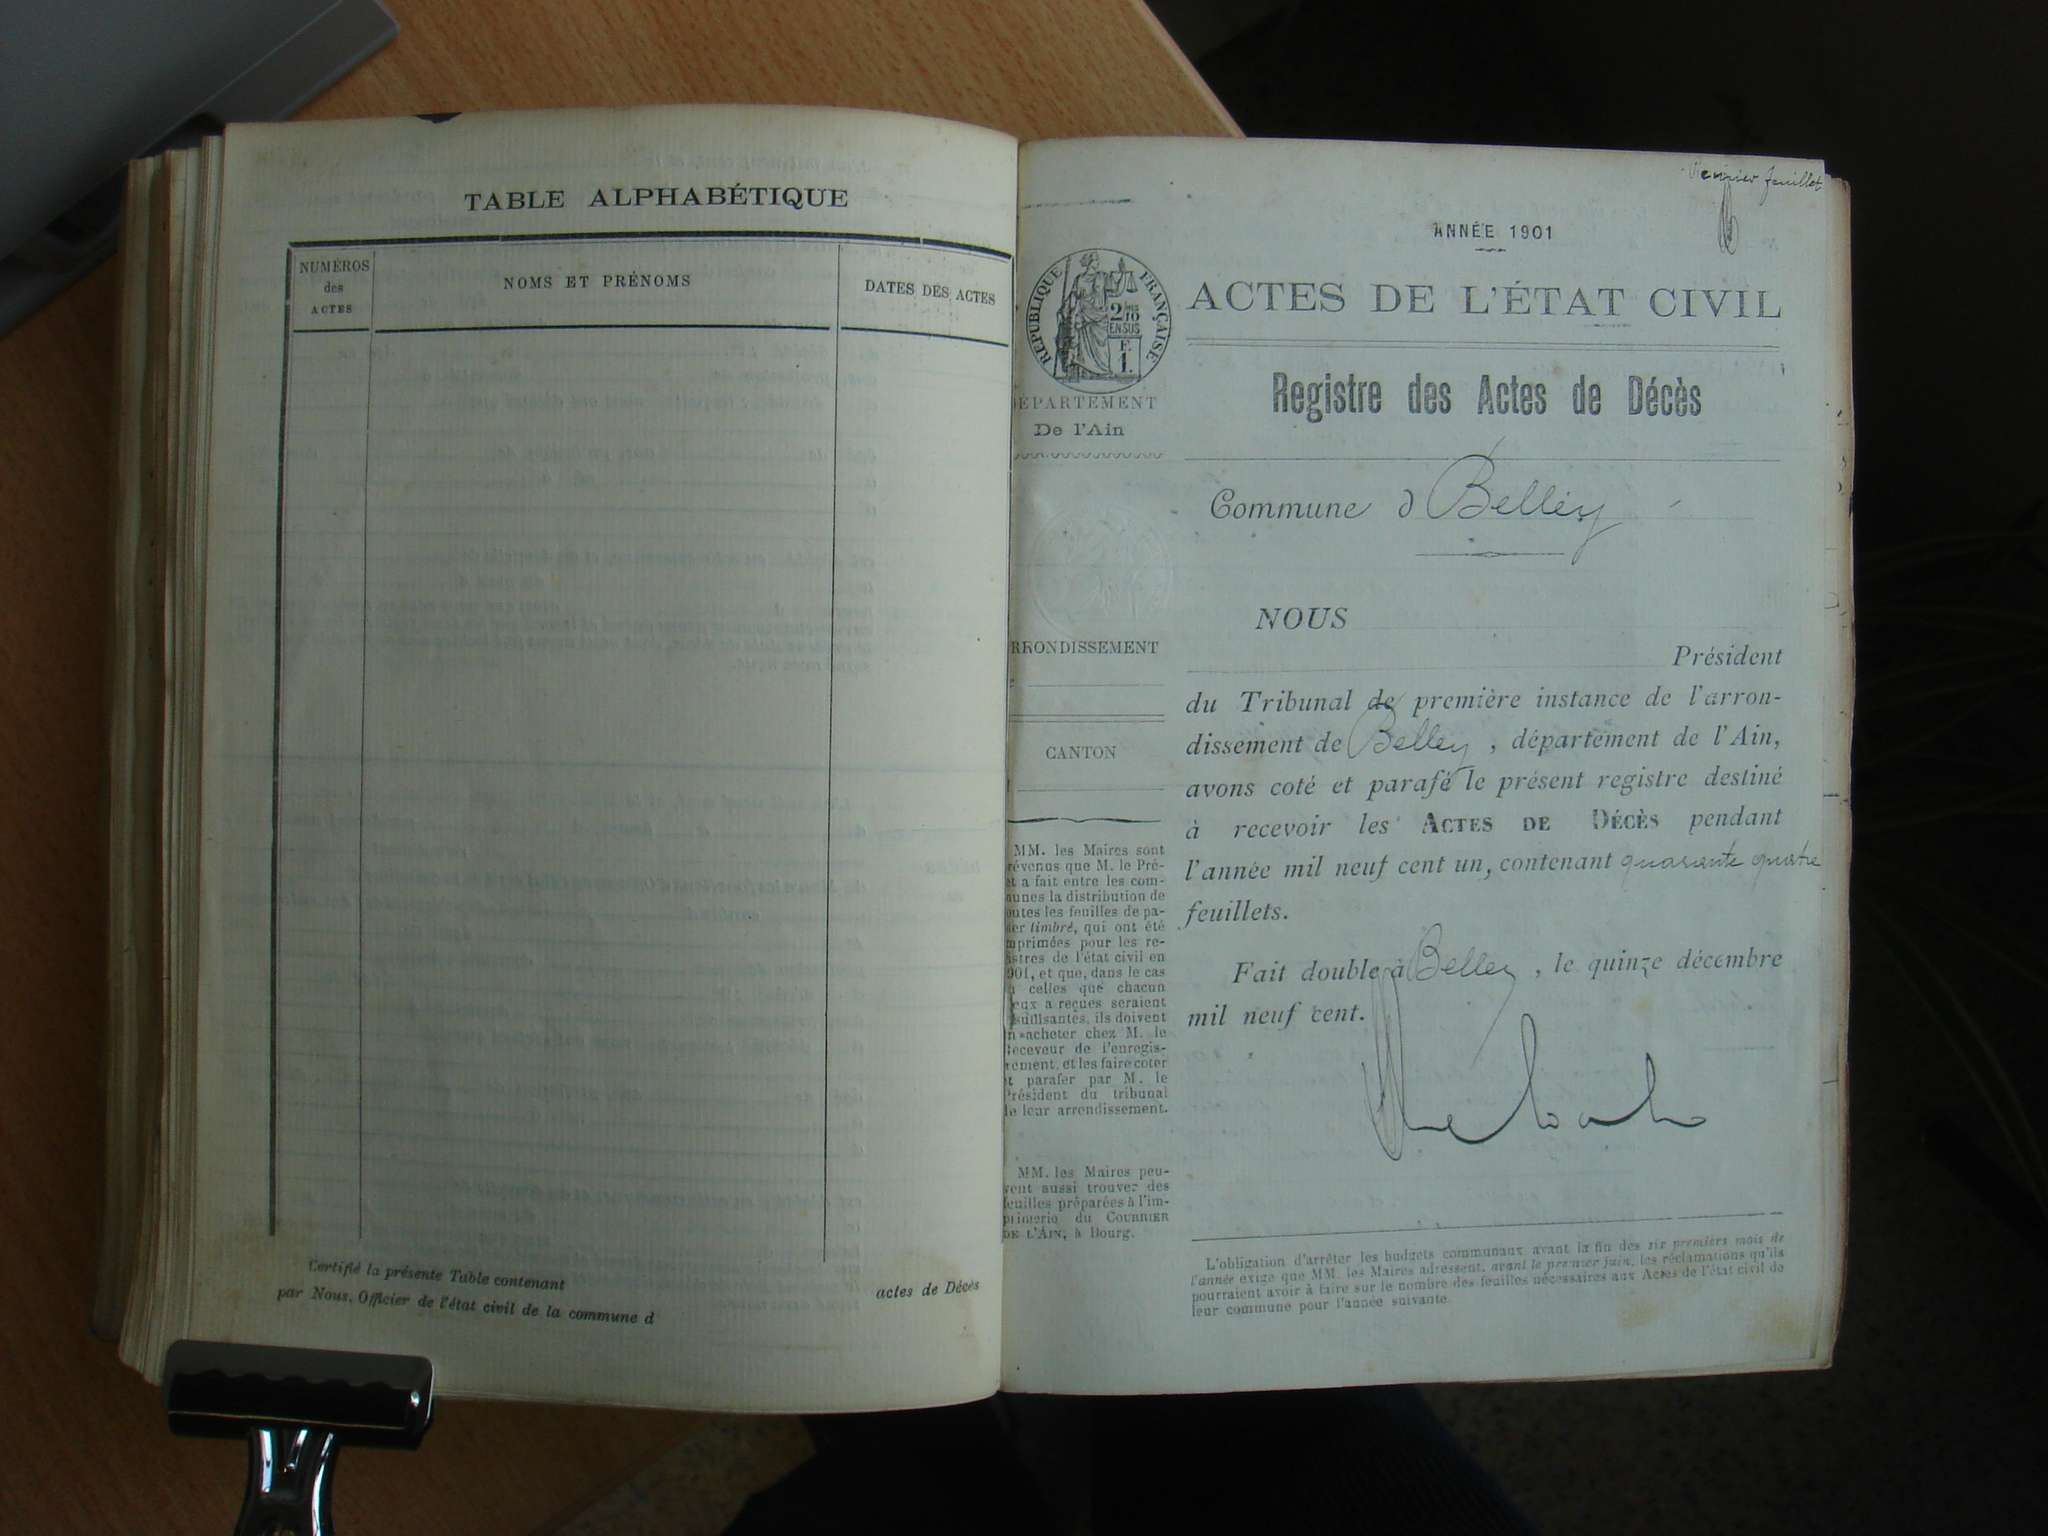 TABLE ALPHABÉTIQUE
NUMÉROS
des
ACTES
NOMS ET PRÉNOMS
DATES DES ACTES
Certifié la présente Table contenant
actes de Décès
par Nous, Officier de l'état civil de la commune d
feuillet
ANNÉE 1901
RÉPUBLIQUE FRANÇAISE
2 10
EN SUS
F.
1.
ACTES DE L'ÉTAT CIVIL
Registre des Actes de Décès
DÉPARTEMENT
De l'Ain
Commune d Belley
NOUS
Président
du Tribunal de première instance de l'arron-
dissement de Belley, département de l'Ain,
avons coté et parafé le présent registre destiné
à recevoir les ACTES DE DÉCÈS pendant
l'année mil neuf cent un, contenant quarante quatre
feuillets.
Fait double à Belley, le quinze décembre
mil neuf cent.
RRONDISSEMENT
CANTON
MM. les Maires sont
révenus que M. le Pré-
et a fait entre les com-
munes la distribution de
outes les feuilles de pa-
ier timbré, qui ont été
mprimées pour les re-
istres de l'état civil en
901, et que, dans le cas
celles que chacun
eux a reçues seraient
suffisantes, ils doivent
n acheter chez M. le
Receveur de l'enregis-
rement, et les faire coter
t parafer par M. le
Président du tribunal
de leur arrondissement.
MM. les Maires peu-
vent aussi trouver des
feuilles préparées à l'im-
primerie du COURRIER
DE L'AIN, à Bourg.
L'obligation d'arrêter les budgets communaux avant la fin des six premiers mois de
l'année exige que MM. les Maires adressent, avant le premier juin, les réclamations qu'ils
pourraient avoir à faire sur le nombre des feuilles nécessaires aux Actes de l'état civil de
leur commune pour l'année suivante.